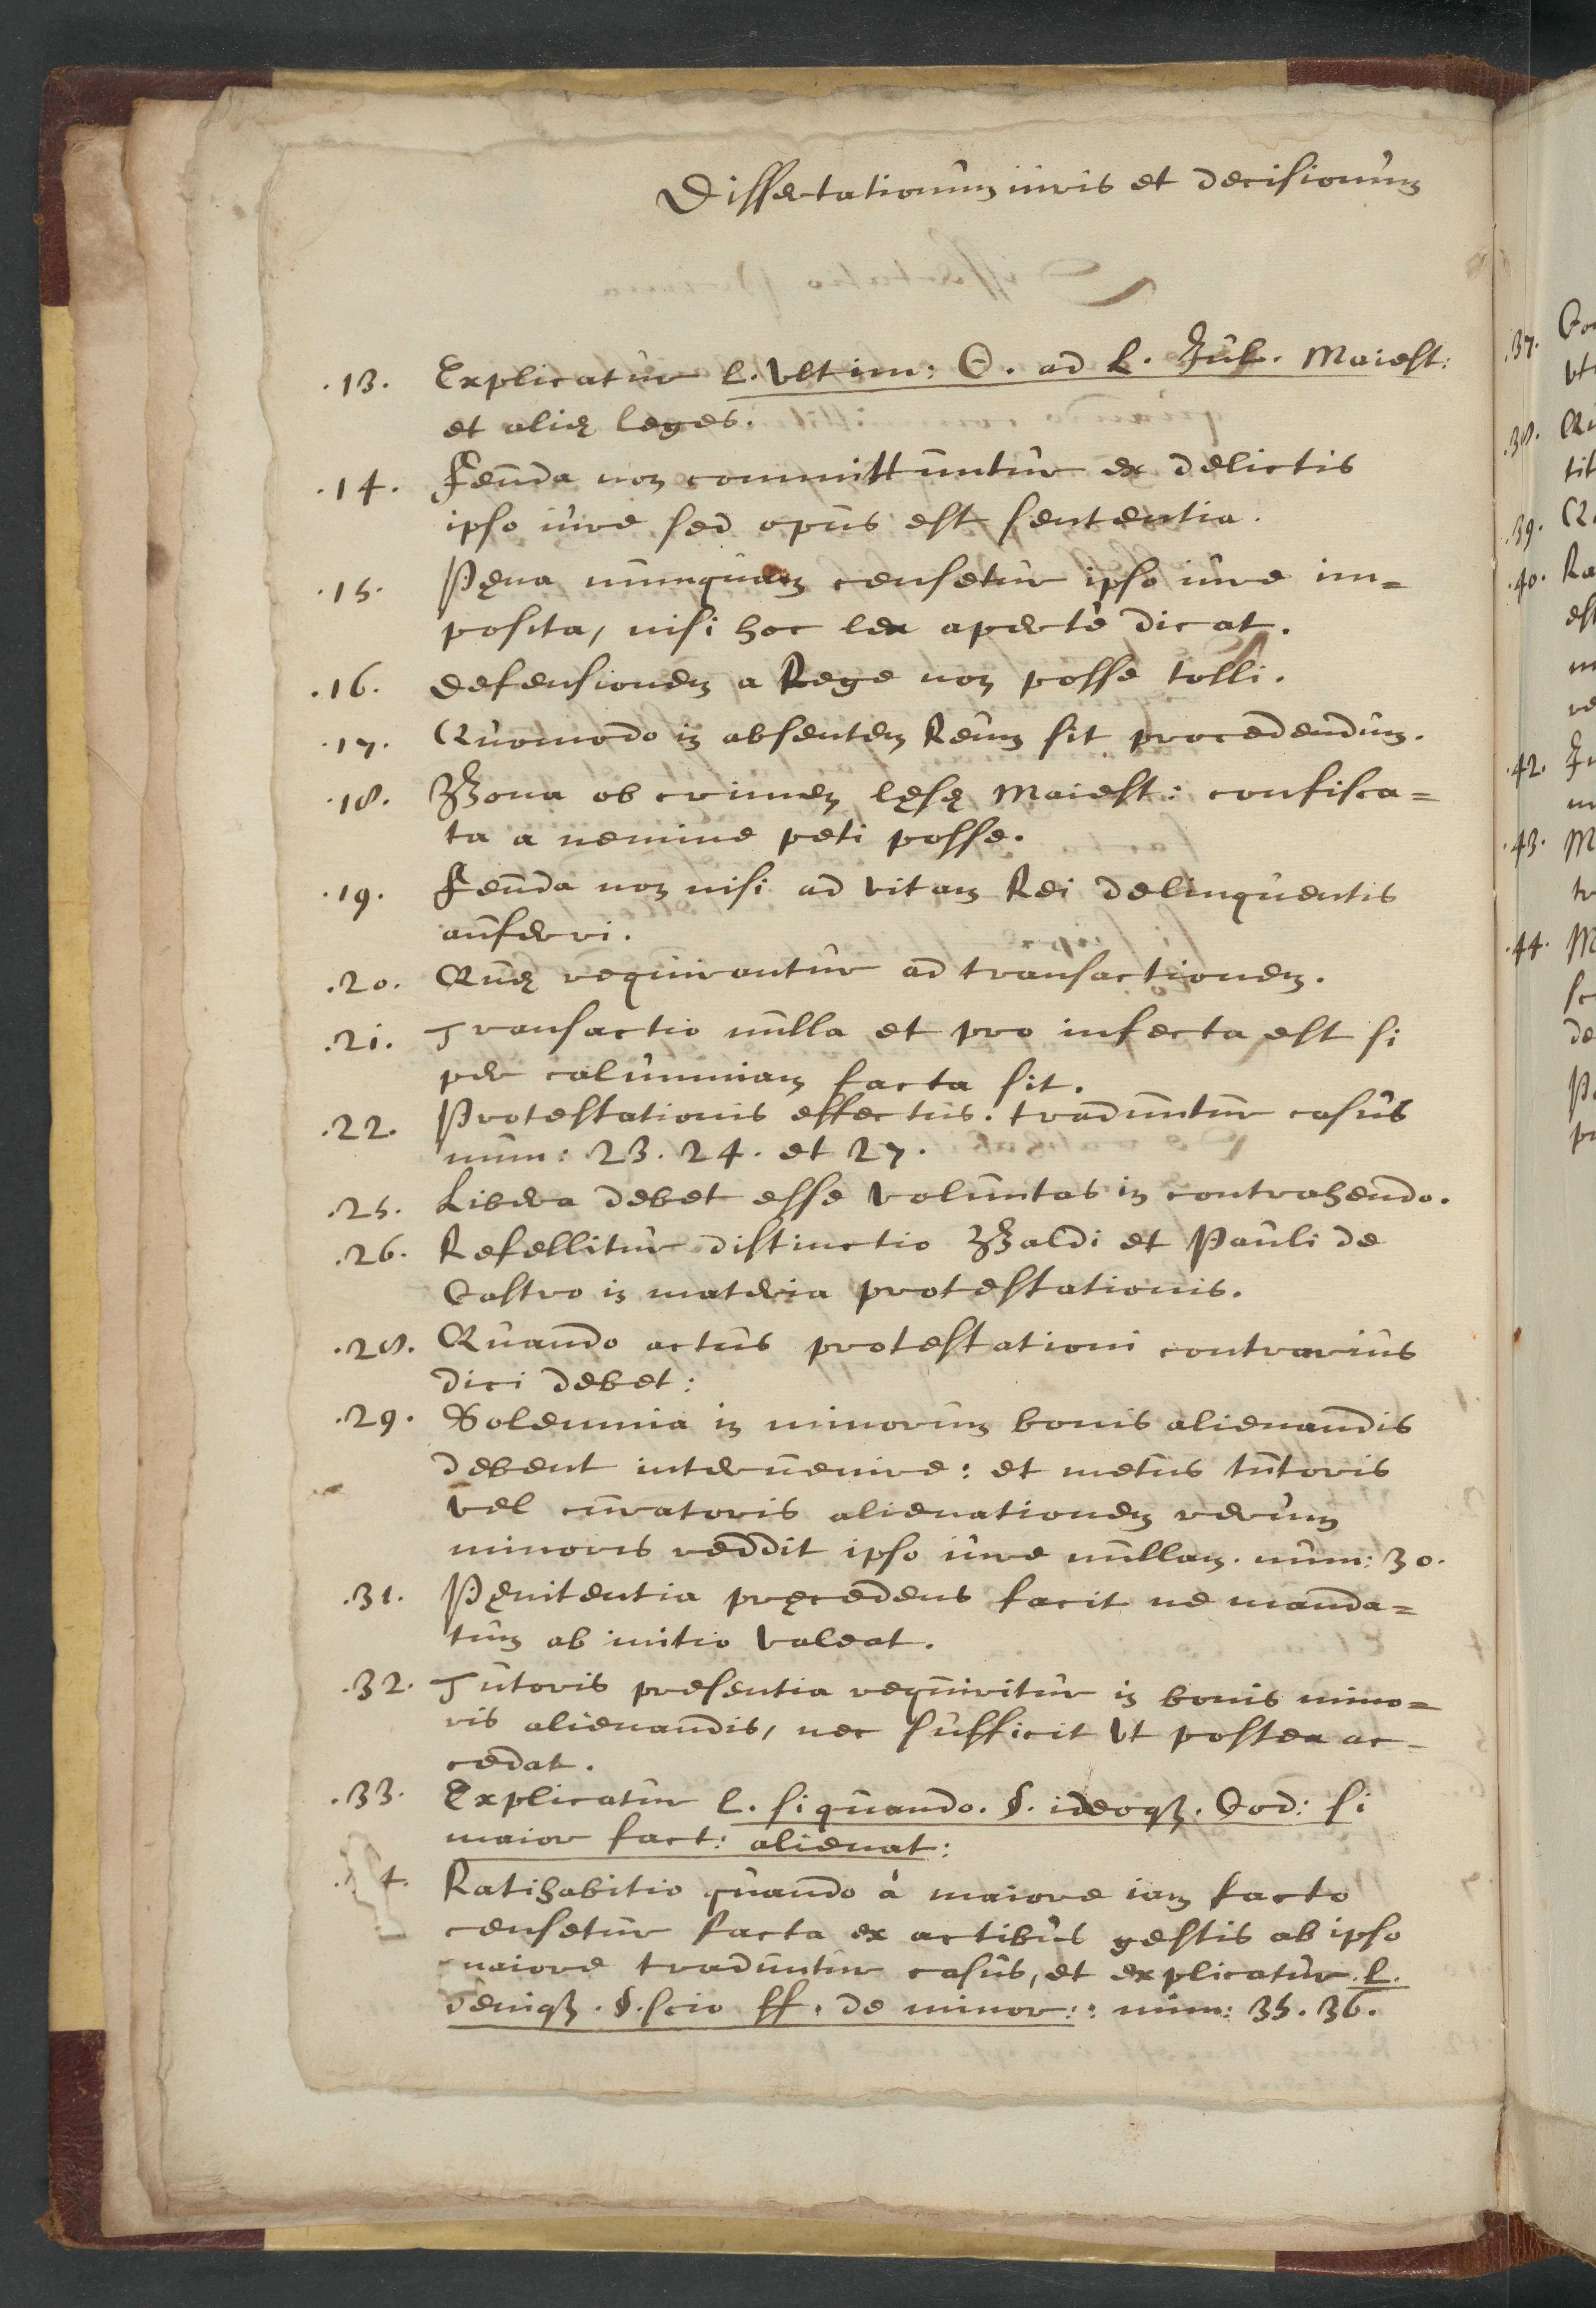 Dissertationum iuris et decisionum
.13. Explicatur l. Vltim: C. ad L. Iul. Maiest:
et alię leges.
.14. Feuda non committuntur ex delictis
ipso iure sed opus est sententia.
.15. Pęna nunquam censetur ipso iure im=
posita, nisi hoc lex apertè dicat.
.16. Defensionem a Rege non posse tolli.
.17. Quomodo in absentem Reum sit procedendum.
.18. Bona ob crimen lęsę Maiest: confisca=
ta a nemine peti posse.
.19. Feuda non nisi ad vitam Rei delinquentis
auferri.
.20. Quę requirantur ad transactionem.
.21. Transactio nulla et pro infecta est si
per calumniam facta sit.
.22. Protestationis effectus. traduntur casus
num: 23. 24. et 27.
.25. Libera debet esse voluntas in contrahendo.
.26. Refellitur distinctio Baldi et Pauli de
Castro in materia protestationis.
.28. Quando actus protestationi contrarius
dici debet:
.29. Solemnia in minorum bonis alienandis
debent interuenire: et metus tutoris
vel curatoris alienationem rerum
minoris reddit ipso iure nullam. num: 30.
.31. Pęnitentia pręcedens facit ne manda=
tum ab initio valeat.
.32. Tutoris presentia requiritur in bonis mino=
ris alienandis, nec sufficit vt postea ac-
cedat.
.33. Explicatur l. si quando. §. ideoqȝ. Cod: si
maior fact: alienat:
4. Ratihabitio quando à maiore iam facto
censetur facta ex actibus gestis ab ipso
maiore traduntur casus, et explicatur. l.
deniqȝ. §. scio ff. de minor:: num: 35. 36.
.37.
vt
.38.
tit
.39.
.40. Ra
est
.42.
.43. M
.44. M
de